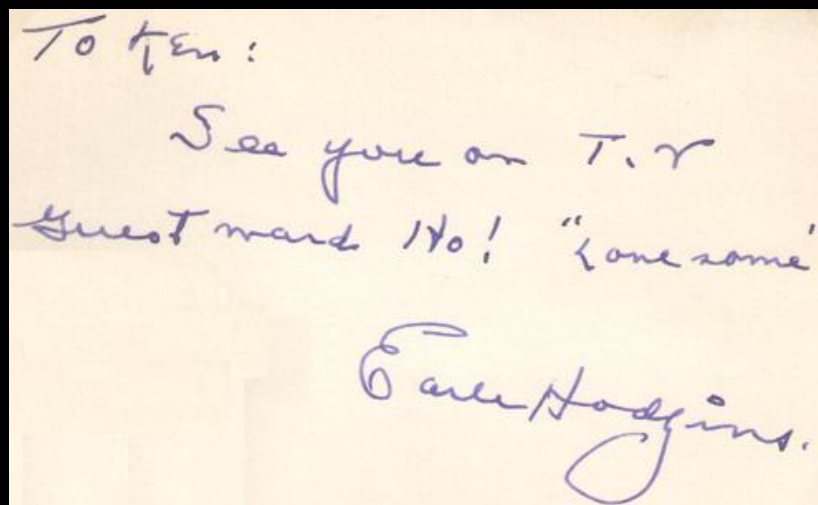 To Ken:
See you on T.V
Guestward Ho! "Lonesome"
Earle Hodgins.